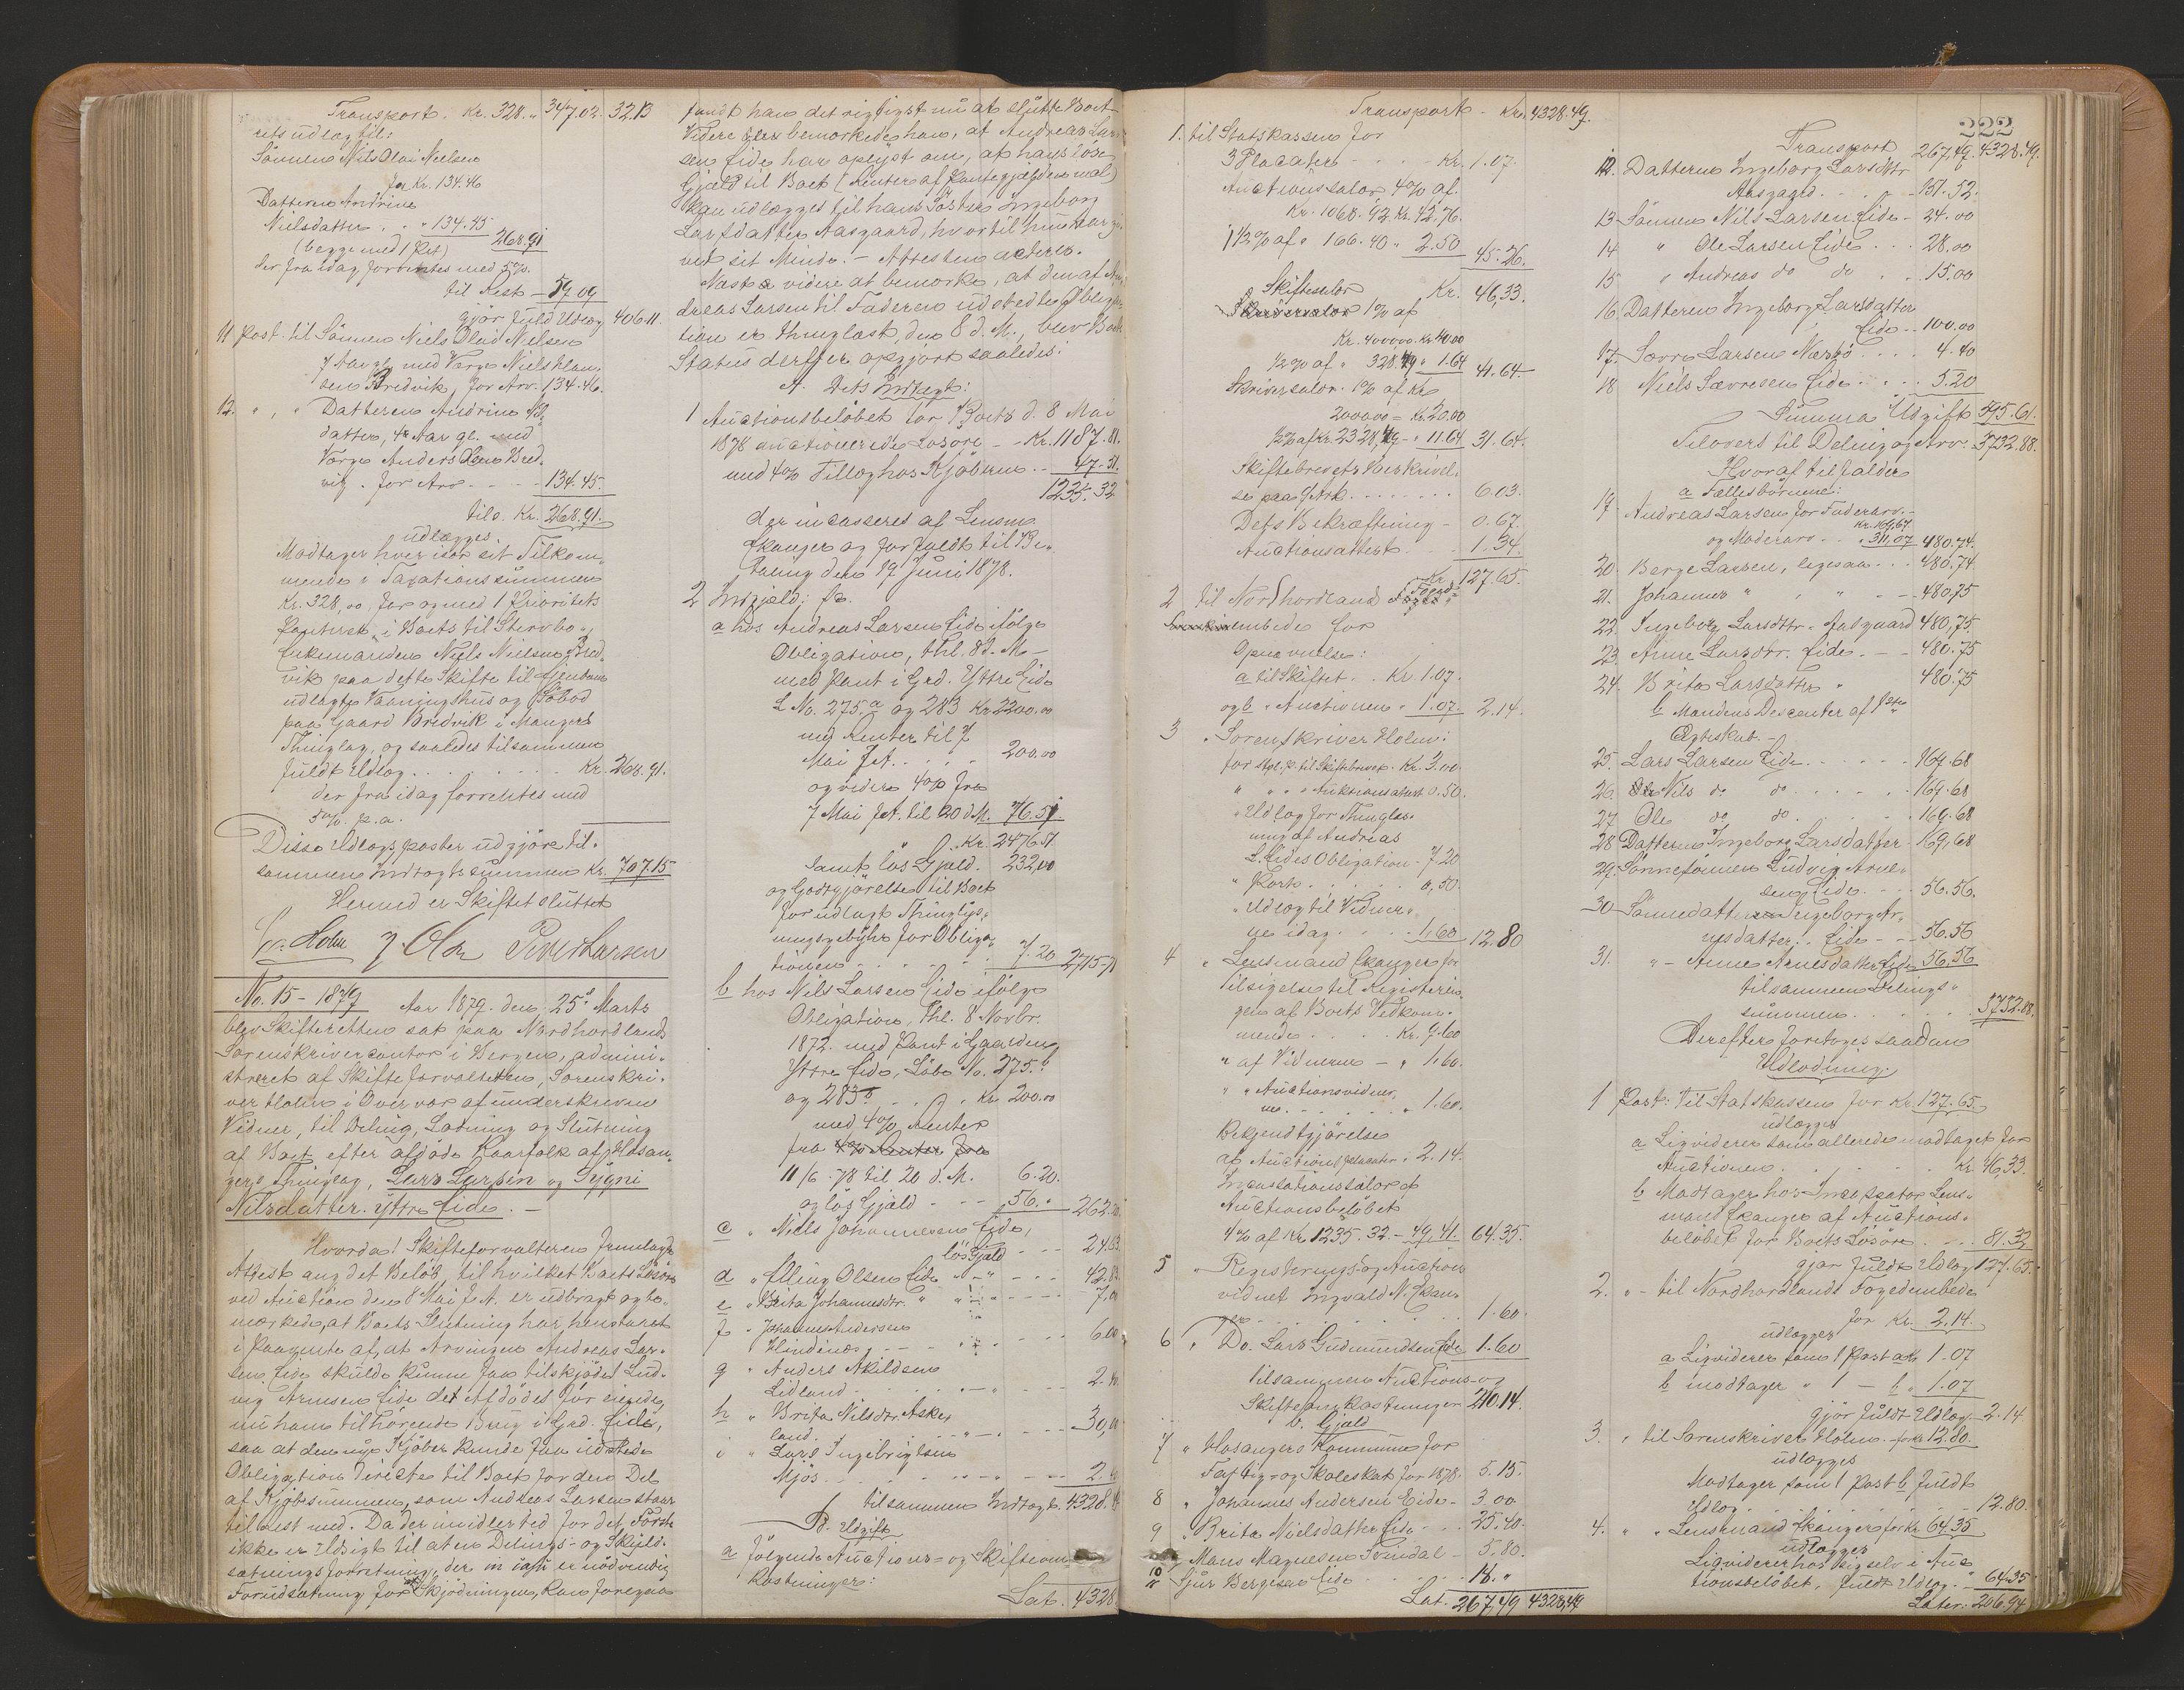 Transport. Kr. 328." 347.02. 32.13
rets udlag til:
Sönnen Nils Olai Nielsen
for Kr. 134.46
Datteren Andrine
Nielsdatter . . " 134.45
(begge med 1 Prt) 268.91
der fra idag forrentes med 5%.
til Rest - 59.09
gjör fuld Udlæg 406.11.
11 Post. til Sönnen Niels Olai Nielsen
7 Aar gl. med Værge Niels Han-
sen Bredvik, for Arv. 134.46.
12. " , " Datteren Andrine Nils-
datter, 4 Aar gl. med
Værge Anders Olsen Bred-
vig . for Arv - - - 134.45.
tils. Kr. 268.91.
udlægges
Modtager hver især sit Tilkom-
mende i Taxationssummen
Kr. 328,00, for og med 1 Prioritets
Panteret, i Boets til Stervbo-
Enkemanden Niels Nielsen Bred-
vik paa dette Skifte til Eiendom
udlagte Vaaningshus og Söbod
paa Gaard Bredvik i Mangers
Thinglag, og saaledes tilsammen
fuldt Udlæg . . . . . . Kr. 268.91.
der fra idag forrentes med
5% p.a.
Disse Udlægsposter udgjöre til-
sammen Indtægtssummen Kr. 707.15
Hermed er Skiftet sluttet
Holm J. Olsen Peder Larsen
No. 15 - 1879 Aar 1879. den 25de Marts
blev Skifteretten sat paa Nordhordlands
Sorenskrivercontor i Bergen, admini-
streret af Skifteforvalteren, Sorenskri-
ver Holm i Overvær af underskrevne
Vidner, til Deling, Lodning og Slutning
af Boet efter afdöde Kaarfolk af Hosan-
gers Thinglag, Lars Larsen og Sygni
Nilsdatter Yttre Eide. -
Hvorda! Skifteforvalteren fremlagde
Attest ang det Belöb, til hvilket Boets Lösöre
ved Auction den 8 Mai f. A. er udbragt og be-
mærkede, at Boets Slutning har henstaaet
i Paavente af, at Arvingen Andreas Lar-
sen Eide skulde kunne faa tilskjödet Lud-
vig Arnesen Eide det Afdödes för eiende,
nu ham tilhörende Brug i Grd. Eide,
saa at den nye Kjöber kunde faa udstede
Obligation directe til Boet for den Del
af Kjöbesummen, som Andreas Larsen staar
til Rest med. Da der imidlertid for det Förste
ikke er Udsigt til at en Delings- og Skyld-
sætningsforretning, der er nödvendig
Forudsætning for Skjödningen, kan foregaa
fandt han det rigtigst nu at slutte Boet
Videre bemærkede han, at Andreas Lar-
sen Eide har oplyst om, at hans löse
Gjæld til Boet (Renter af Pantegjælden incl)
kan udlægges til hans Söster Ingeborg
Larsdatter Aasgaard, hvortil hun har gi-
vet sit Minde. - Attesten acteres.
Næst videre at bemærke, at den af An-
dreas Larsen til Faderen udstedte Obliga-
tion er thinglæst den 8 d. M., blev Boets
Status derefter opgjort saaledes:
A. Dets Indtægt:
1 Auctionsbelöbet for Boets d. 8 Mai
1878 auctionerede Lösöre - - Kr. 1187.81.
med 4% Tillæg hos Kjöberne . . 47.51.
1235.32
der incasseres af Lensm.
Skanger og forfaldt til Be-
taling den 19 Juni 1878.
2 Indgjæld: fr.
a hos Andreas Larsen Eide ifölge
Obligation, thl. 8 d. M. -
med Pant i Grd. Yttre Eide
L No. 275.a og 283 Kr. 2200.00
med Renter til 7
Mai f. A. . . . . 200.00
og videre 4% fra
7 Mai f. A. til 20 d. M. 76.51
Kr. 2476.51
samt lös Gjæld - 232,00
og Godtgjörelse til Boet
for udlagt Thinglys-
ningsgebyhr for Obliga-
tionen - - - - - 7.20 2715.71
b hos Nils Larsen Eide ifölge
Obligation, thl. 8 Novbr.
1872 med Pant i Gaarden
Yttre Eide, Löbe No. 275.b
og 283b . . . Kr. 200.00
med 4% Renter
fra 4% Renter fra
11/6 - 78 til 20 d. M. 6.20.
og lös Gjæld - - - 56." 262.20
c " Niels Johannesen Eide,
lös Gjæld - - - 24.83
d " Elling Olsen Eide " - " - - - 42.
e " Brita Johannesdtr. " " - " - - - 7.00
f " Johannes Andersen
Hindenes, - - - - 6.00
g " Anders Akildsen
Lidland - - - - 2.
h " Brita Nilsdtr. Aske-
land - - - 30,00
i " Lars Ingebrigtsen
Mjös - - - - - 2.
tilsammen Indtægt 4328.49
B. Udgift
a fölgende Auctions- og Skifteom-
kostninger:
Lat. 4328
Transport - Kr. 4328.49.
1. til Statskassen for
3 Placater - - - - Kr. 1.07.
Auctionssalær 4% af.
Kr. 1068.92 Kr. 42.76.
1 1/2% af " 166.40 " 2.50 45.26.
Kr. 46,33.
Skiftesalær
Skriversalær 1% af
Kr. 4000.00. Kr. 40.00
1/2% af " 328.49 " 1.64 41.64.
Skriversalær. 1% af Kr.
2000.00 = Kr. 20.00
1/2% af Kr. 2328,49 - " 11.64 31.64.
Skiftebrevets Beskrivel-
se paa 9 Ark. . . . . . . . 6.03.
Dets Bekræftning - 0.67.
Auctionsattest . . . 1.34.
Kr. 127.65.
2 til Nordhordland Foged-
embede for
Opnævnelse:
a til Skiftet. . Kr. 1.07.
og b " Auctionen " 1.07. 2.14.
3 " Sorenskriver Holm:
for stpl. P. til Skiftebrevet. Kr. 3.00.
" " " " Auktionsattest 0.50.
" Udlæg for Thinglæs-
ning af Andreas
L. Eides Obligation - 7.20
" Porto . . . . . 0,50.
" Udlæg til Vidner-
ne idag . . . . 1,60 12.80
4 " Lensmand Skanger for
Tilsigelse til Registerin-
gen af Boets Vedkom-
mende . . . . Kr. 9.60
" af Vidnerne - " 1.60.
" " Auctionsvidner-
ne. . . . . . . " 1.60.
Bekjendtgjörelse
af Auctionsplacater . 2.14.
Incassationssalær af
Auctionsbelöbet
4% af Kr. 1235.32. - 49.41. 64.35.
5 " Registrings- og Auctions
vidnet Ingvald N. Skan-
ger . . . . . . . . 1.60.
6 " Do. Lars Gudmundsen Eide 1.60
tilsammen Auctions- og
Skifteomkostninger 210.14.
b. Gjæld
7 " Hosangers Kommune for
Fattig- og Skoleskat for 1878. 5.15.
8 " Johannes Andersen Eide - 3.00
9 " Brita Nielsdatter Eide - . . 25.40.
10 Mans Magnesen Tvindal - 5.80.
11 Sjur Bergesen Eide . . . . . 18."
Lat. 267,49 4328,49
222
Transport 267,49. 4328.49.
12. Datteren Ingeborg Larsdtr
Aasgaard. . . . . 151.52.
13 Sönnen Nils Larsen Eide - 24.00
14 " Ole Larsen Eide . . . 28.00
15 " Andreas do do . . 15.00
16 Datteren Ingeborg Larsdatter
Eide . . 100.00
17. Sævre Larsen Nærbö . . . 4.40
18 Niels Sævresen Eide . . . 5.20
Summa Udgift 595.61.
Tilovers til Deling og Arv. 3732.88.
Hvoraf tilfalder
a Fællesbörnene:
19. Andreas Larsen for Faderarv. -
Kr. 169.67.
og Moderarv - . " 311,07 480.74.
20. Berge Larsen, ligesaa . . . 480.74
21. Johannes " , " . - - 480,75
22. Ingeborg Larsdtr. Aasgaard 480,75.
23. Anne Larsdtr. Eide. - - 480.75
24. Brita Larsdatter " 480.75
b Mandens Descenter af 1ste
Ægteskab. -
25. Lars Larsen Eide . . . . . 169.68
26. Nils do do . . . . . 169.68
27 Ole do do . . . . . 169.68
28 Datteren Ingeborg Larsdatter . 169,68
29. Sönnesönnen Ludvig Arne-
sen Eide. . . . 56.56.
30. Sönnedatteren Ingeborg Ar-
nesdatter. Eide - - 56.56
31. " - Anne Arnesdatter Eide 56,56
tilsammen Delings-
summen . . . . . . . 3732.88.
Derefter foretoges saadan
Udlodning.
1 Post: Til Statskassen for Kr. 127.65.
udlægges
a Liqviderer som allerede modtaget for
Auctionen. . . . . . Kr. 46,33.
b Modtager hos Incassator Lens-
mand Skanger af Auctions-
belöbet for Boets Lösöre . . . 81.32
gjör fuldt Udlæg 127.65.
2. " - til Nordhordlands Fogedembede
for Kr. 2.14.
udlægges
a Liqviderer som 1 Post a Kr. 1.07
b modtager " 1 - b " 1.07
gjör fuldt Udlæg - 2.14.
3. " til Sorenskriver Holm - for Kr. 12.80.
udlægges
Modtager som 1 Post b fuldt
Udlæg . . . . . . . . 12.80.
4. " " Lensmand Skanger for Kr. 64.35
udlægges
Liqviderer hos sig selv i Auc
tionsbelöbet. fuldt Udlæg. - 64.35
Later: 206.94